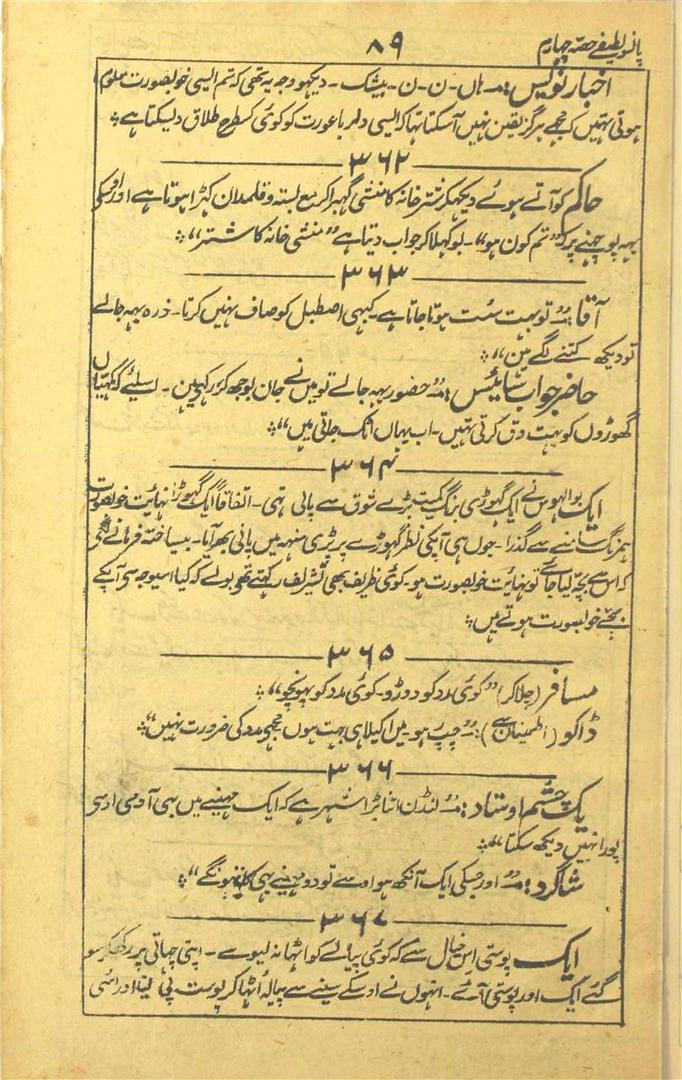 پانسو لطیفے حصہ چہارم
۸۹
اخبار نویس :۔ ہاں ۔ ن ۔ ن ۔ بیشک ۔ دیکھو وجہ یہ تھی کہ تم ایسی خوبصورت معلوم
ہوتی تہیں کہ مجھے ہرگز یقین نہیں آ سکتا تہا کہ ایسی دلربا عورت کو کوئی کسطرح طلاق دلیسکتا ہے
۳۶۲
حاکم کو آتے ہوئے دیکھکر شترخانہ کا منشی گہبرا کر مع بستہ و قلمدان کہڑا ہوتا ہے اور اوسکی
یہہ پوچہنے پر کہ "تم کون ہو" ۔ بوکہلا کر جواب دیتا ہے "منشی خانہ کا شتر"
۳۶۳
آقا :۔ "تو بہت سُست ہوتا جاتا ہے ۔ کبہی اصطبل کو صاف نہیں کرتا ۔ ذرہ یہہ جالے
تو دیکھ کتنے لگے ہین"
حاضر جواب سائیس :۔ "حضور یہہ جالے تو میں نے جان بوجھ کر رکہے ہین ۔ اسلیئے کہ مکہیاں
گھوڑوں کو بہت دق کرتی تہیں ۔ اب یہاں اٹک جاتی ہیں"
۳۶۴
ایک بوالہوس نے ایک گہوڑی برنگ کمیت بڑے شوق سے پالی تہی ۔ اتفاقاً ایک گہوڑا نہائیت خوبصورت
ہمرنگ سامنے سے گذرا ۔ جوں ہی آپکی نظر گہوڑے پر پڑی منہہ میں پانی بھر آیا ۔ بیساختہ فرمانے لگے
کہ اس سے بچہ لیا جائے تو نہائیت خوبصورت ہو ۔ کوئی ظریف بھی تشریف رکہتے تھے بولے کہ کیا اسیوجہ سی آپکے
بچے خوبصورت ہوتے ہیں
۳۶۵
مسافر (چلا کر) "کوئی مدد کو دوڑو ۔ کوئی مدد کو پہونچو"
ڈاکو (اطمینان سے) :۔ "چپ رہو میں اکیلا ہی بہت ہوں مجھے مدد کی ضرورت نہیں"
۳۶۶
یک چشم اوستاد :۔ "لنڈن اتنا بڑا شہر ہے کہ ایک مہینے میں بہی آدمی اوسی
پورا نہیں دیکھ سکتا"
شاگرد :۔ "اور جسکی ایک آنکھ ہو اوسے تو دو مہینے بہی کافی نہونگے"
۳۶۷
ایک پوستی اس خیال سے کہ کوئی پیالے کو اٹہا نہ لیوے ۔ اپنی چہاتی پر رکھکر سو
گئے ایک اور پوستی آئے ۔ انہوں نے اوسکے سینے سے پیالہ اُٹہا کر پوست پی لیا اور اسی